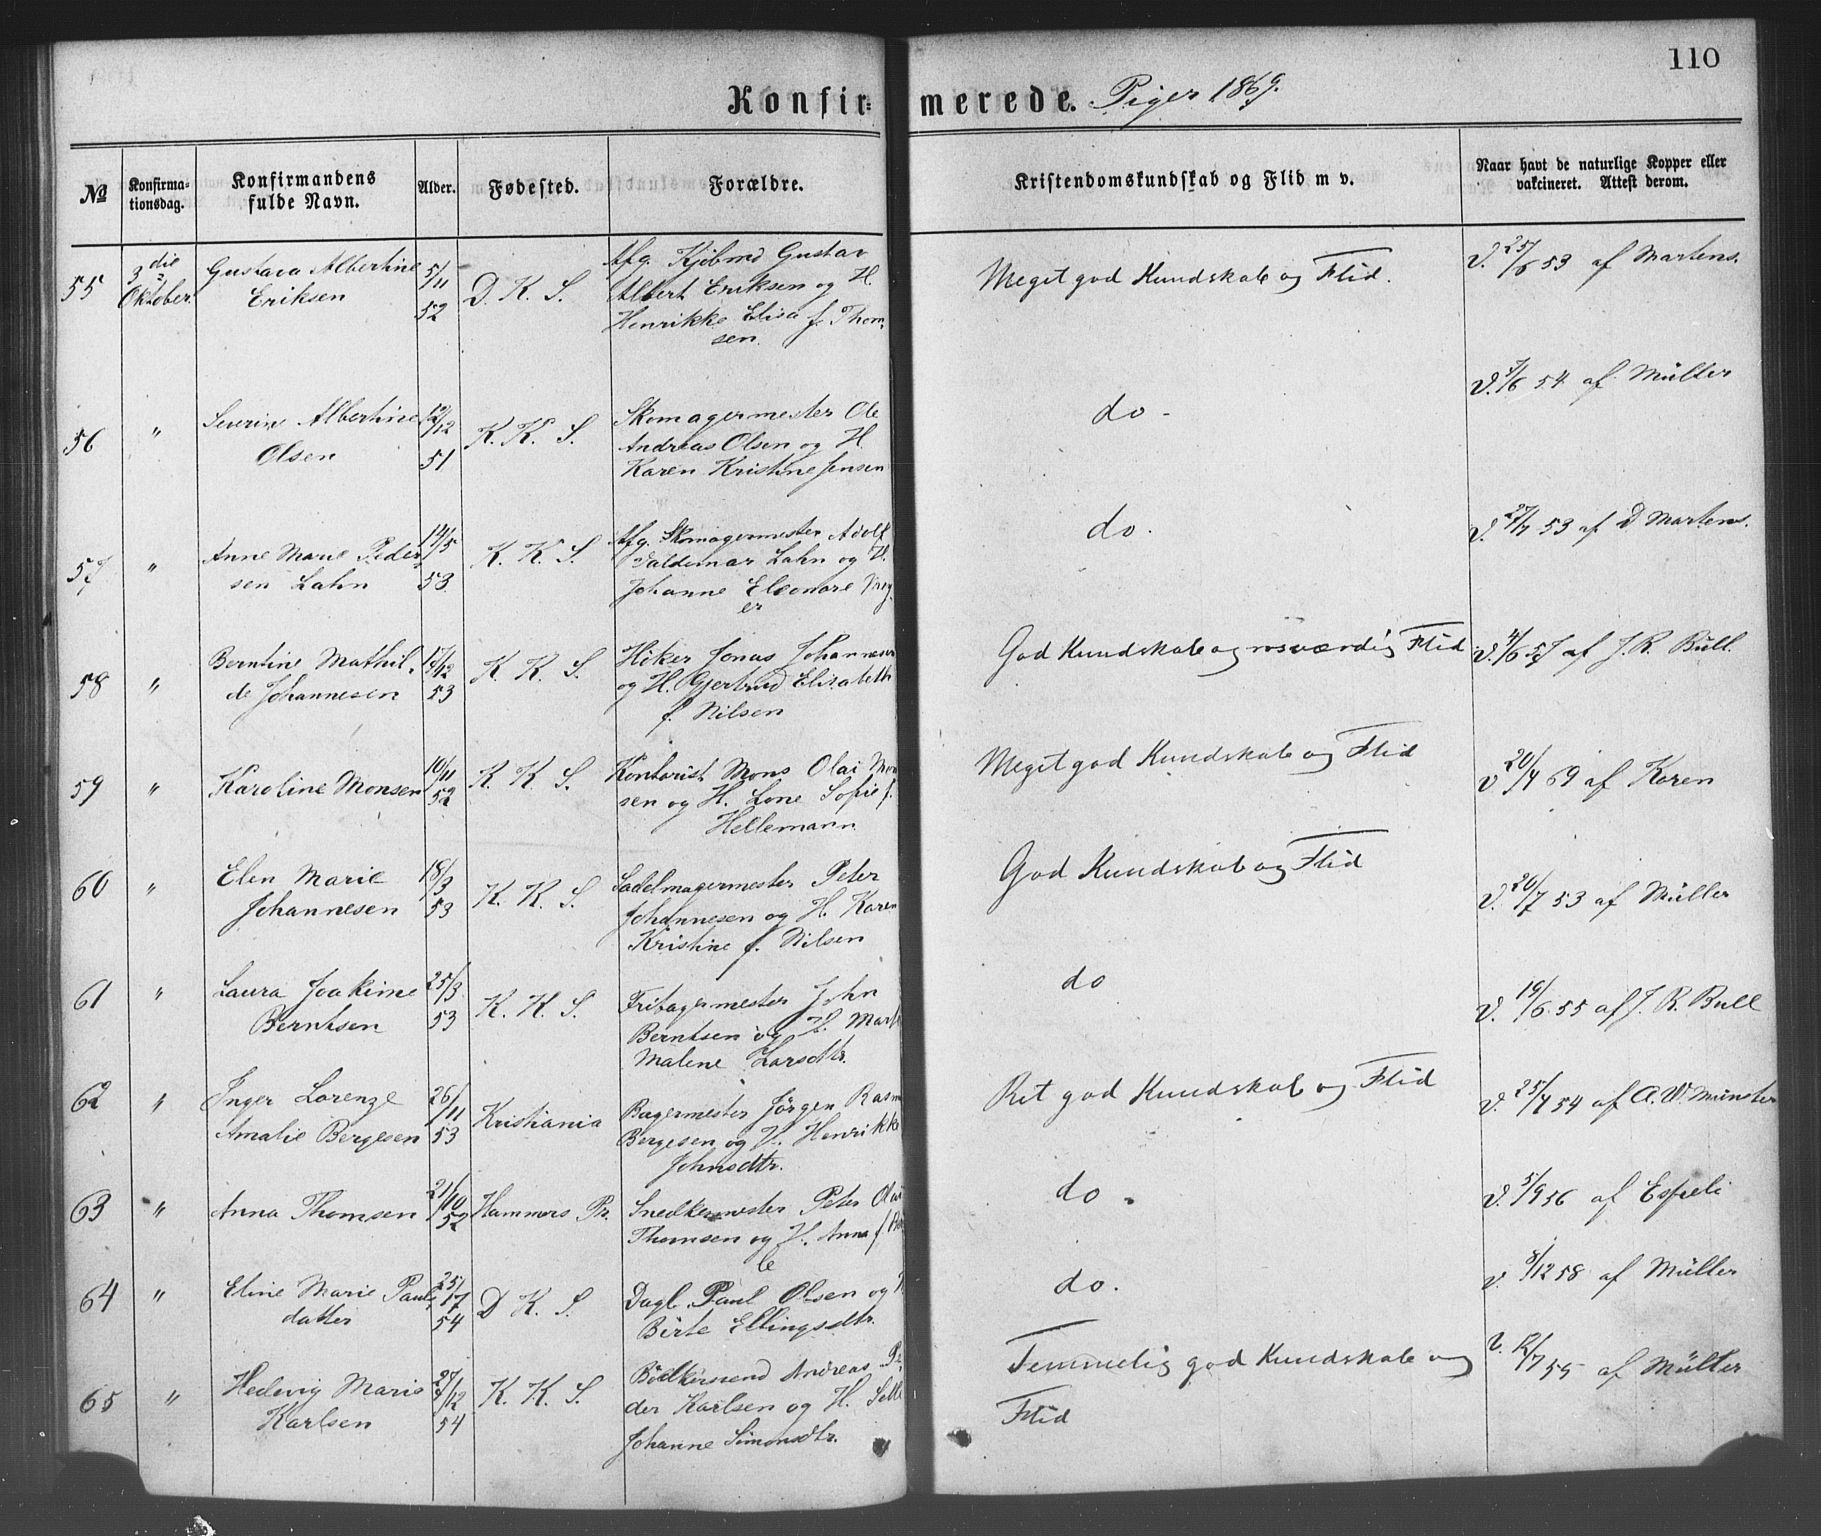 110
Konfirmerede. Piger 1869.
No
Konfirma-
tionsdag.
Konfirmandens
fulde Navn.
Alder.
Fødested.
Forældre.
Kristendomskundskab og Flid m v.
Naar havt de naturlige Kopper eller
vakcineret. Attest derom.
55
3die
Oktober.
Gustava Albertine
Eriksen
5/11
52
D. K. S.
Afg. Kjøbmd Gustav
Albert Eriksen og H.
Henrikke Elisa f. Thom-
sen.
Meget god Kundskab og Flid.
V. 25/6 53 af Martens.
56
"
Severine Albertine
Olsen
12/12
51
K. K. S.
Skomagermester Ole
Andreas Olsen og H.
Karen Kristine Jensen
do -
V. 7/6 54 af Müller
57
"
Anne Marie Peder-
sen Lahn
14/5
53
K. K. S.
Afg. Skomagermester Adolf
Valdemar Lahn og H.
Johanne Eleonore
er
do.
V. 27/7 53 af D Martens.
58
"
Berntine Mathil-
de Johannesen
17/12
53
K K. S.
Høker Jonas Johannesen
og H. Gjertrud Elisabeth
f. Nilsen
God Kundskab og rosværdig Flid
V. 4/6 57 af J. R. Bull.
59
"
Karoline Monsen
10/11
52
K. K. S.
Kontorist Mons Olai Mon
sen og H. Lone Sofie f.
Hellemann
Meget god Kundskab og Flid
V 20/4 69 af Koren
60
"
Elen Marie
Johannesen
18/3
53
K. K. S.
Sadelmagermester Peter
Johannesen og H. Karen
Kristine f. Nilsen
God Kundskab og Flid
V. 26/7 53 af Müller
61
"
Laura Joakime
Berntsen
25/3
53
K. K. S.
John
Berntsen og H. Marte
Malene Larsdtr.
do
V. 19/6 55 af J. R. Bull
62
"
Inger Lorenze
Amalie Bergesen
26/11
53
Kristiania
Bagermester Jörgen Rasm
Bergesen og H. Henrikke
Johnsdtr.
Ret god Kundskab og Flid
V. 25/7 54 af A. W. Münster
63
"
Anna Thomsen
21/10
52
Hammers Pr.
Snedkermester Peter Olai
Thomsen og H. Anna f.
le
do -
V. 5/9 56 af Espeli
64
"
Eline Marie Pauls-
datter
25/7
54
D K. S.
Dagl. Paul Olsen og H
Birte Ellingsdtr.
do.
V. 8/12 58 af Müller
65
"
Hedevig Marie
Karlsen
27/12
54
K. K. S.
Bödkersvend Andreas Pe-
der Karlsen og H. Selle
Johanne Simonsdtr.
Temmelig god Kundskab og
Flid
V. 12/7 55 af Müller